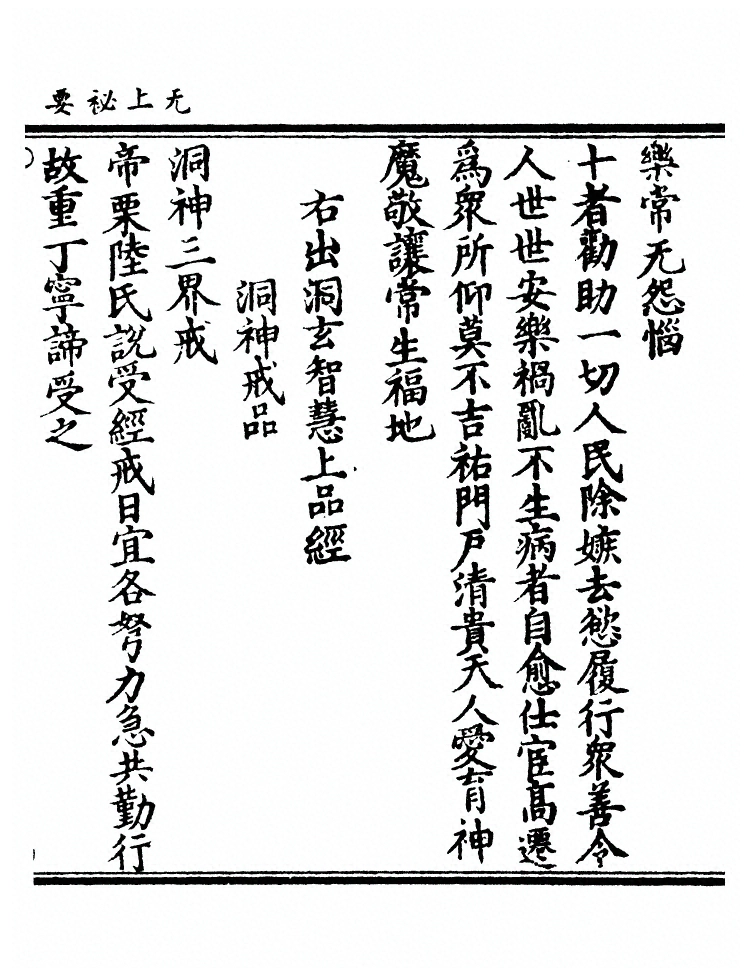 无上祕要
樂常无怨惱
十者勸助一切人民除嫉去慾履行衆善令
人世世安樂禍亂不生病者自愈仕宦高遷
爲衆所仰莫不吉祐門戶清貴天人愛育神
魔敬讓常生福地
右出洞玄智慧上品經
洞神戒品
洞神三界戒
帝栗陸氏說受經戒日宜各努力急共勤行
故重丁寧諦受之